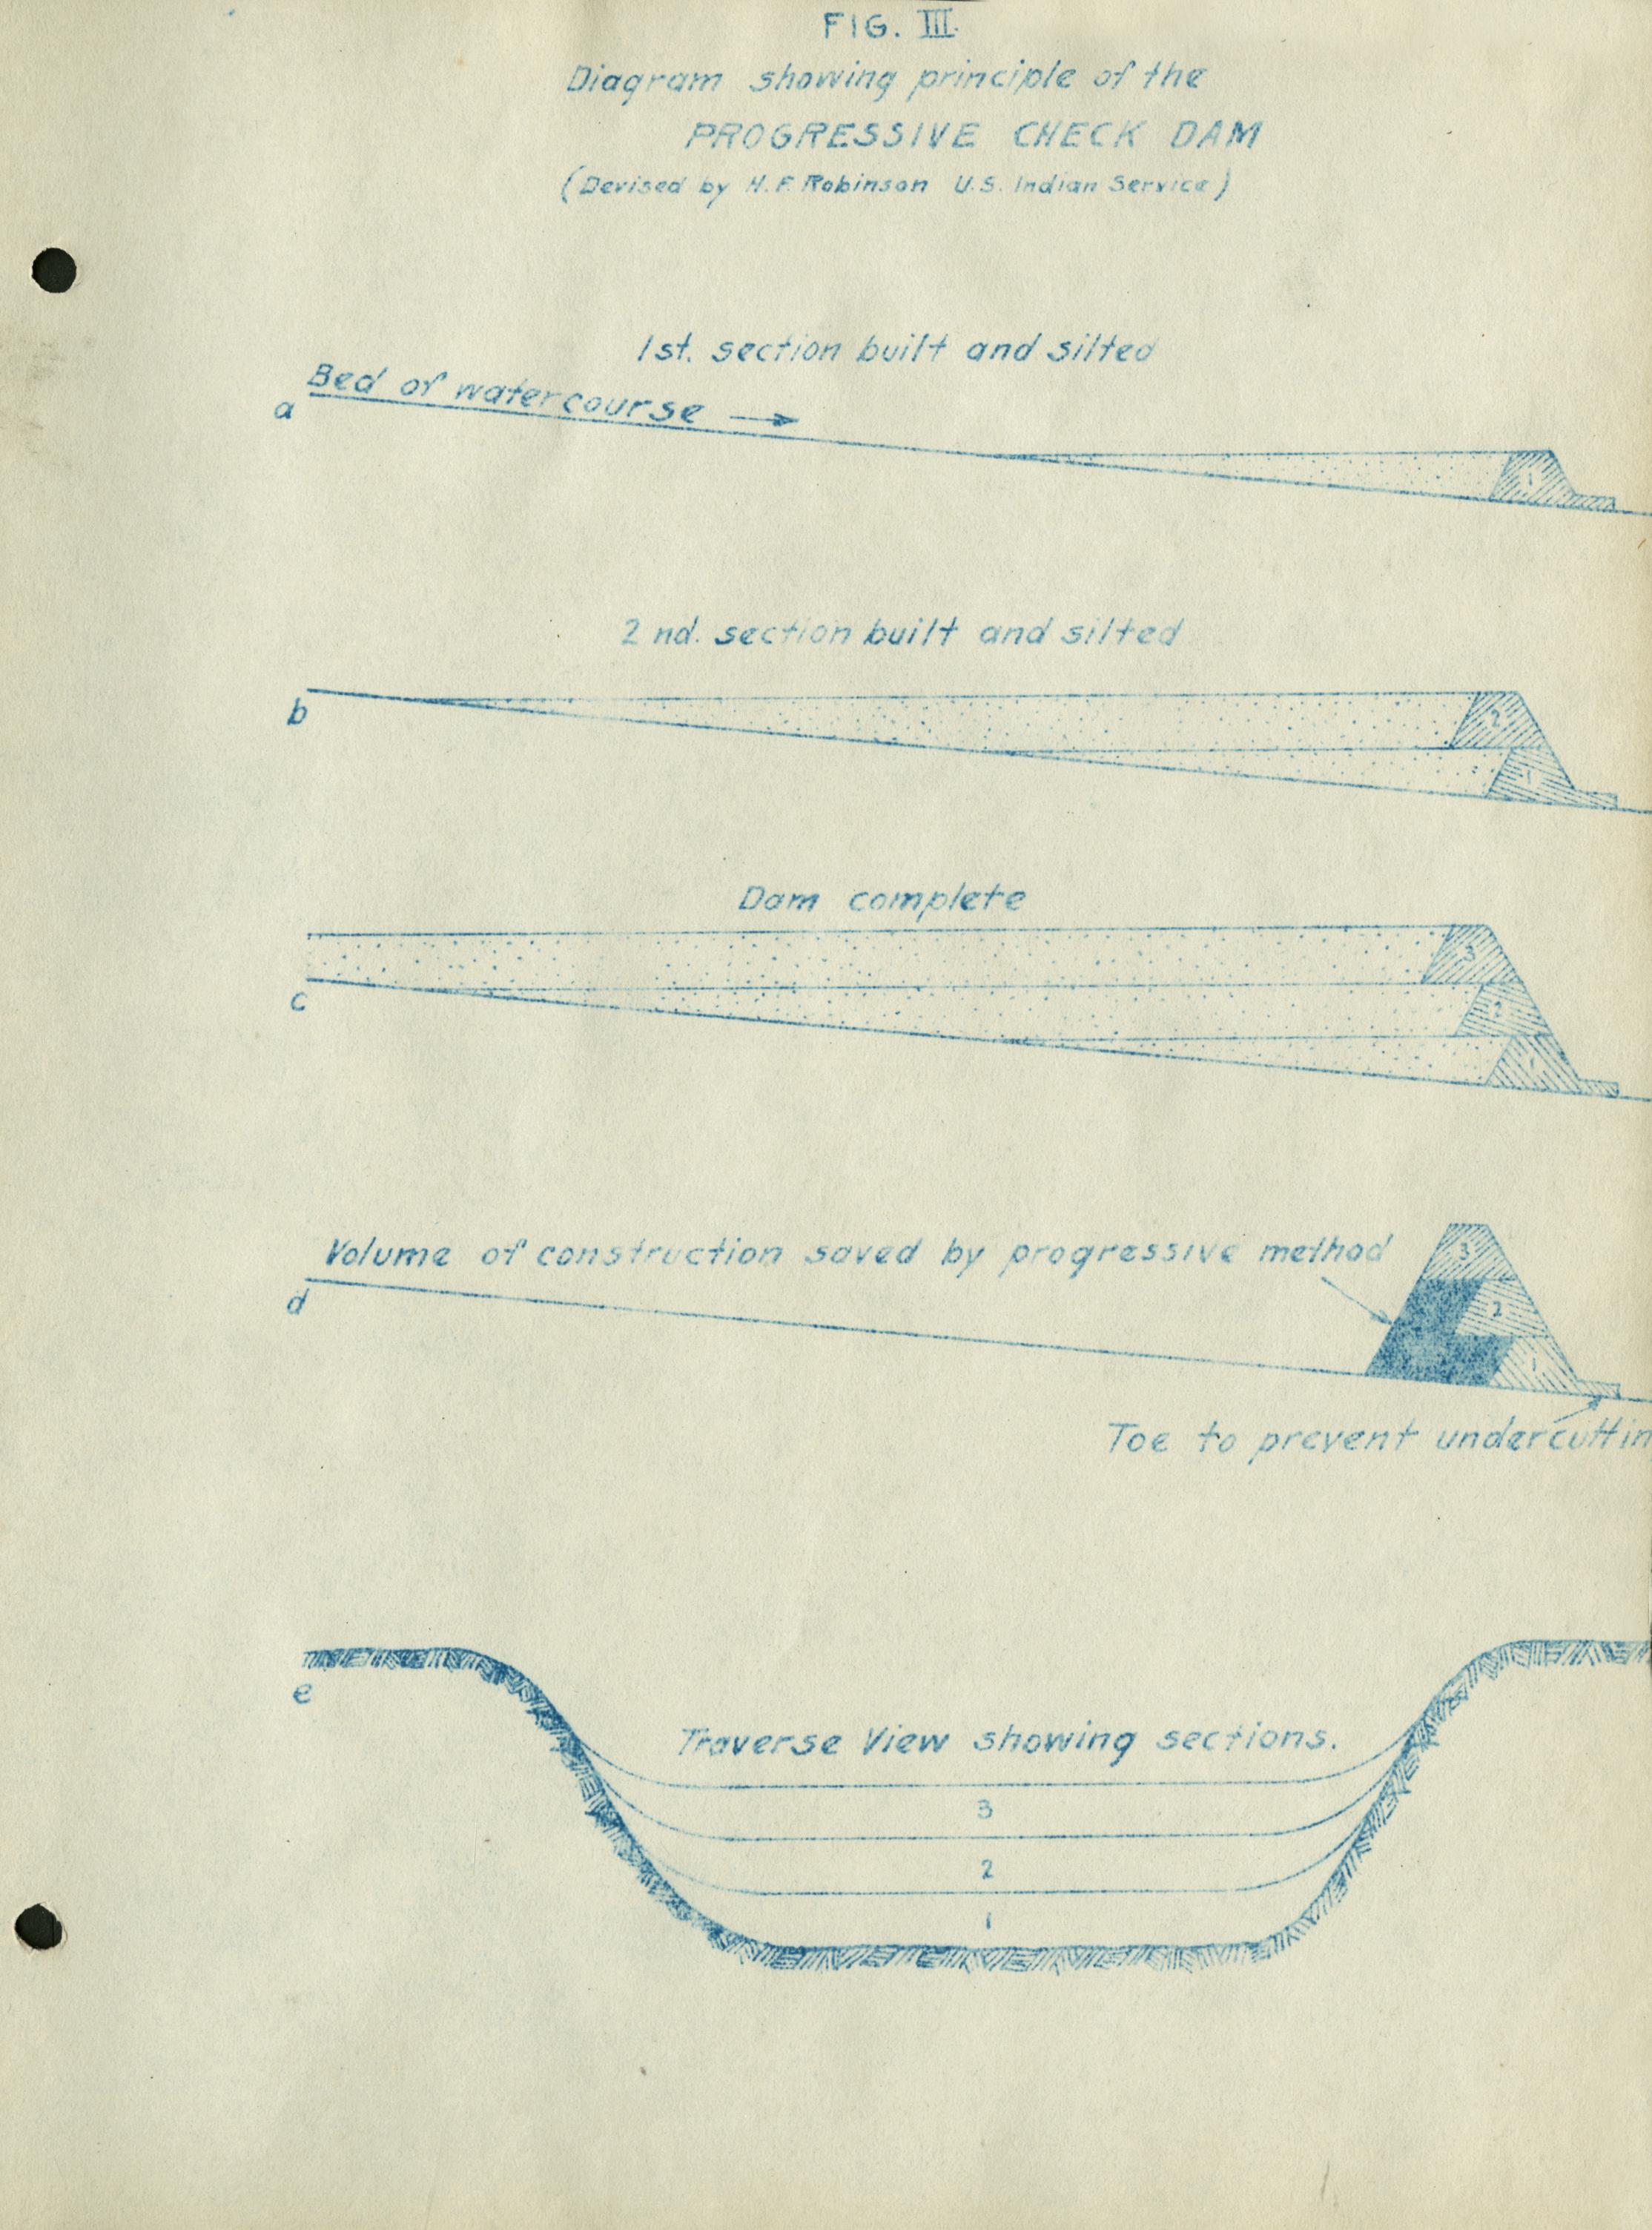 FIG. III.
Diagram showing principle of the
PROGRESSIVE CHECK DAM
(Devised by H. F. Robinson U.S. Indian Service)
1st. section built and silted
Bed of watercourse
a
1
2 nd. section built and silted
b
2
1
Dam complete
3
c
2
1
Volume of construction saved by progressive method
3
d
2
1
Toe to prevent undercuttin
e
Traverse View showing sections.
3
2
1